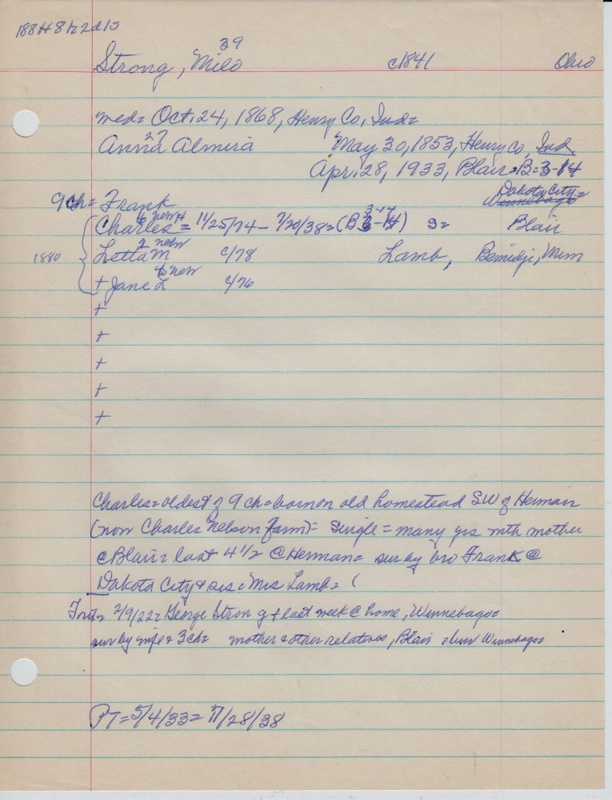 188H8h2d15
39
Strong, Milo c1841 Ohio
med= Oct. 24, 1868, Henry Co, Ind=
27
Anna Almira May 30, 1853, Henry Co, Ind
Apr. 28, 1933, Blair=B=3-14
9 ch= Frank Dakota City= Winnebago
6 new H 3-14
Charles = 11/25/74 - 7/20/38=(B ) s= Blair
2 new
1880 Letta M c/78 Lamb, Bemidji, Minn
4 new
+ Jane L c/76
+
+
+
+
+
Charles=oldest of 9 ch=born on old homestead SW of Herman
(now Charles Nelson farm)= single = many yrs with mother
@ Blair= last 4 1/2 @ Herman= sur by bro Frank @
Dakota City & sis= Mrs Lamb= (
2/9/22= George Strong + last week @ home, Winnebago=
sur by wife & 3 ch= mother & other relatives, Blair = bur Winnebago=
PT= 5/4/33= 7/28/38